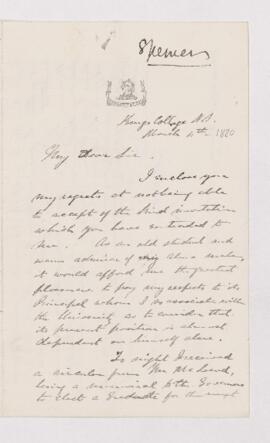 Spencer
Kings College N.S.
March 4th, 1880
My Dear Sir.
I enclose you
my regrets at not being able
to accept of the kind invitation
which you have extended to
me. As an old student and
warm admirer of my Alma mater,
it would afford me the greatest
pleasure to pay my respects to its
Principal whom I so associate with
the University as to consider that
its present position is almost
dependent on himself alone.
To night I received
a circular from Wm McLeod,
being a memorial to the Governors
to elect a Graduate for the